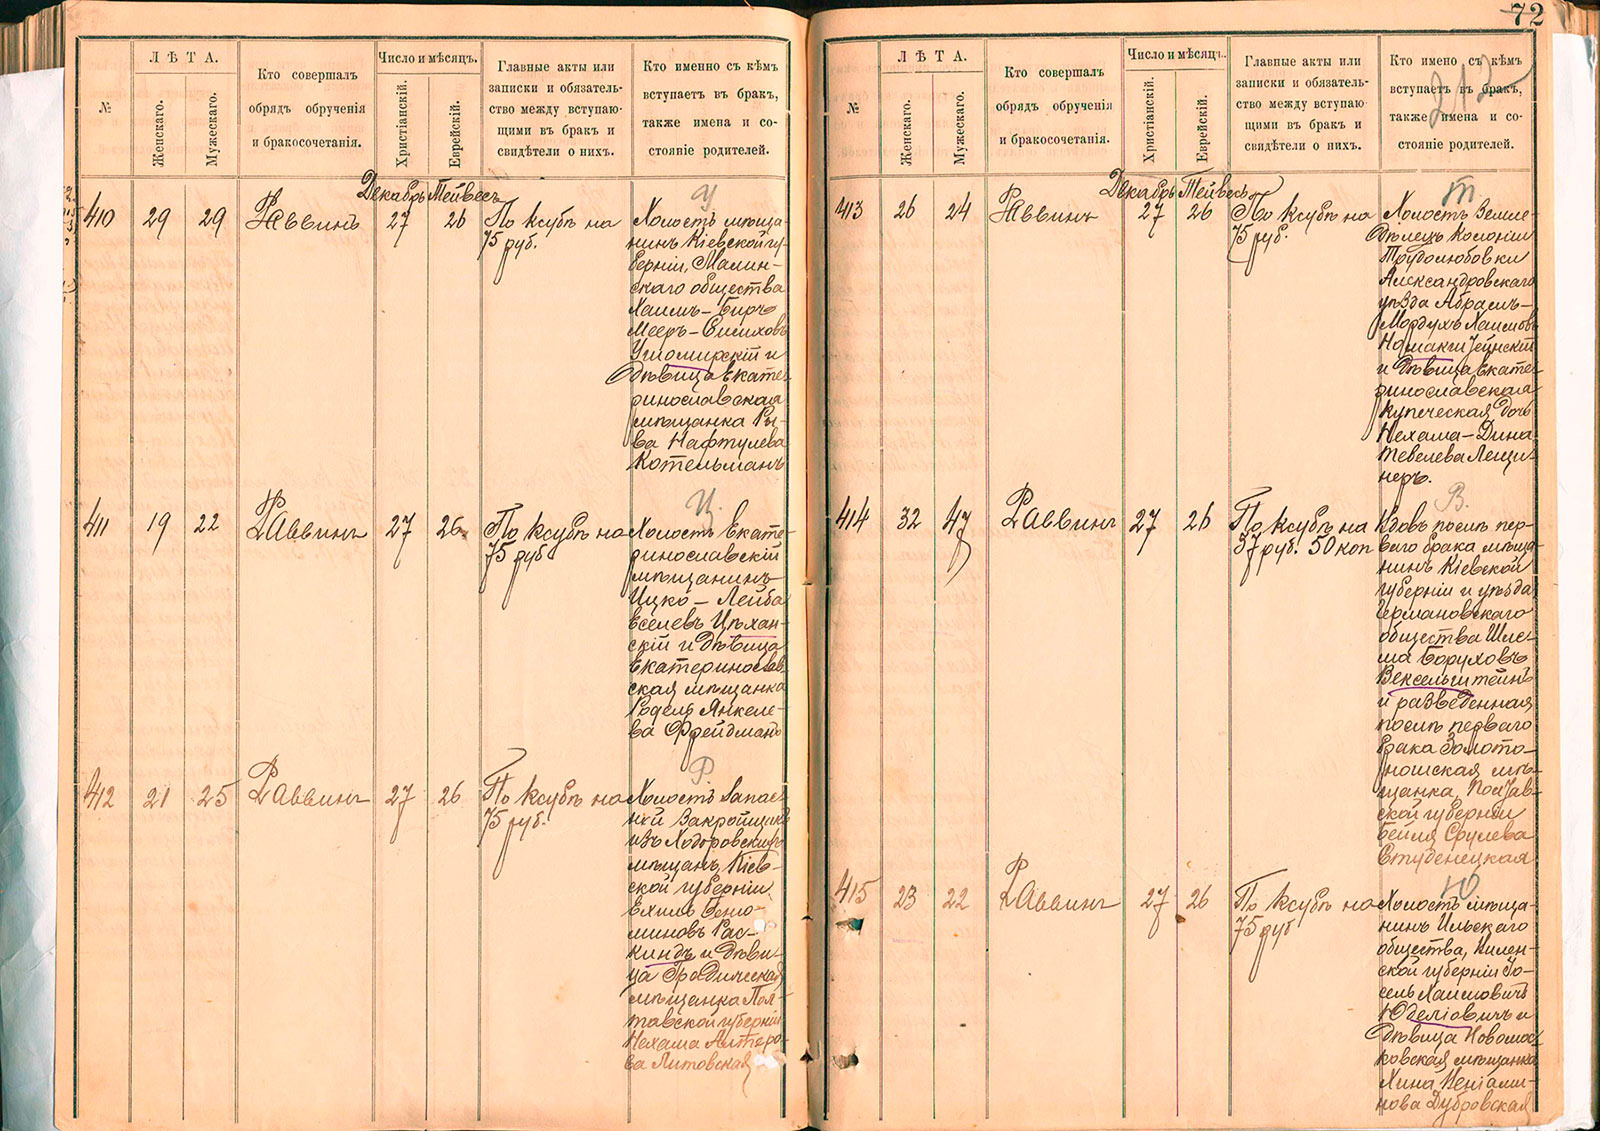 №
ЛѢТА.
Женскаго.
Мужескаго.
Кто совершалъ
обрядъ обрученія
и бракосочетанія.
Число и мѣсяцъ.
Христіанскій.
Еврейскій.
Главные акты или
записки и обязатель-
ство между вступаю-
щими въ бракъ и
свидѣтели о нихъ.
Кто именно съ кѣмъ
вступаетъ въ бракъ,
также имена и со-
стояніе родителей.
Декабрь Тейвесъ
410 29 29 Раввинъ 27 26
По ксубѣ на
75 руб.
У
Холостъ мѣща-
нинъ Кіевской гу-
берніи, Малин-
скаго общества
Хаимъ-Беръ
Мееръ-
Ушомирскій и
дѣвица Екате-
ринославская
мѣщанка Ры-
ва Нафтулева
Котельманъ
411 19 22 Раввинъ 27 26
По ксубѣ на
75 руб
Ц.
Холостъ Екате-
ринославскій
мѣщанинъ
Ицко-Лейба
Евселевъ Цѣхан-
скій и дѣвица
Екатеринослав-
ская мѣщанка
Роделя Янкеле-
ва Фрейдманъ
412 21 25 Раввинъ 27 26
По ксубѣ на
75 руб.
Р.
Холостъ Запас-
ной Закройщикъ
изъ Ходоровскихъ
мѣщанъ, Кіев-
ской губерніи
Ехиль Бенго-
миновъ Рас-
киндъ и дѣви-
ца Градижская
мѣщанка Пол-
тавской губерніи
Нехама Алтеро-
ва Литовская
72
213
№
ЛѢТА.
Женскаго.
Мужескаго.
Кто совершалъ
обрядъ обрученія
и бракосочетанія.
Число и мѣсяцъ.
Христіанскій.
Еврейскій.
Главные акты или
записки и обязатель-
ство между вступаю-
щими въ бракъ и
свидѣтели о нихъ.
Кто имено съ кѣмъ
вступаетъ въ бракъ,
также имена и со-
стояніе родителей.
Декабрь Тейвесъ
413 26 24 Раввинъ 27 26
По ксубѣ на
75 руб.
Холостъ Земле-
дѣлецъ Колоніи
Трудолюбовки
Александровскаго
уѣзда Абрамъ-
Мордухъ Хаимовъ
и дѣвица Екате-
ринославская
купеческая дочь
Нехама-Дина
Тевелева Лещи-
неръ.
414 32 47 Раввинъ 27 26
По ксубѣ на
37 руб. 50 коп
В.
Вдовъ послѣ пер-
ваго брака мѣща-
нинъ Кіевской
губерніи и уѣзда
Германовскаго
общества Шле-
ма Боруховъ
Вексельштейнъ
и разведенная
послѣ перваго
брака Золото-
ношская мѣ-
щанка, Полтав-
ской губерніи
Бейля Срулева
Студенецкая
415 23 22 Раввинъ 27 26
По ксубѣ на
75 руб
Ю
Холостъ мѣща-
нинъ Ильскаго
общества, Вилен-
ской губерніи Іо-
сель Хаимовичъ
Юделіовичъ и
дѣвица Новомос-
ковская мѣщанка
Хина Веніами-
нова Дубровская